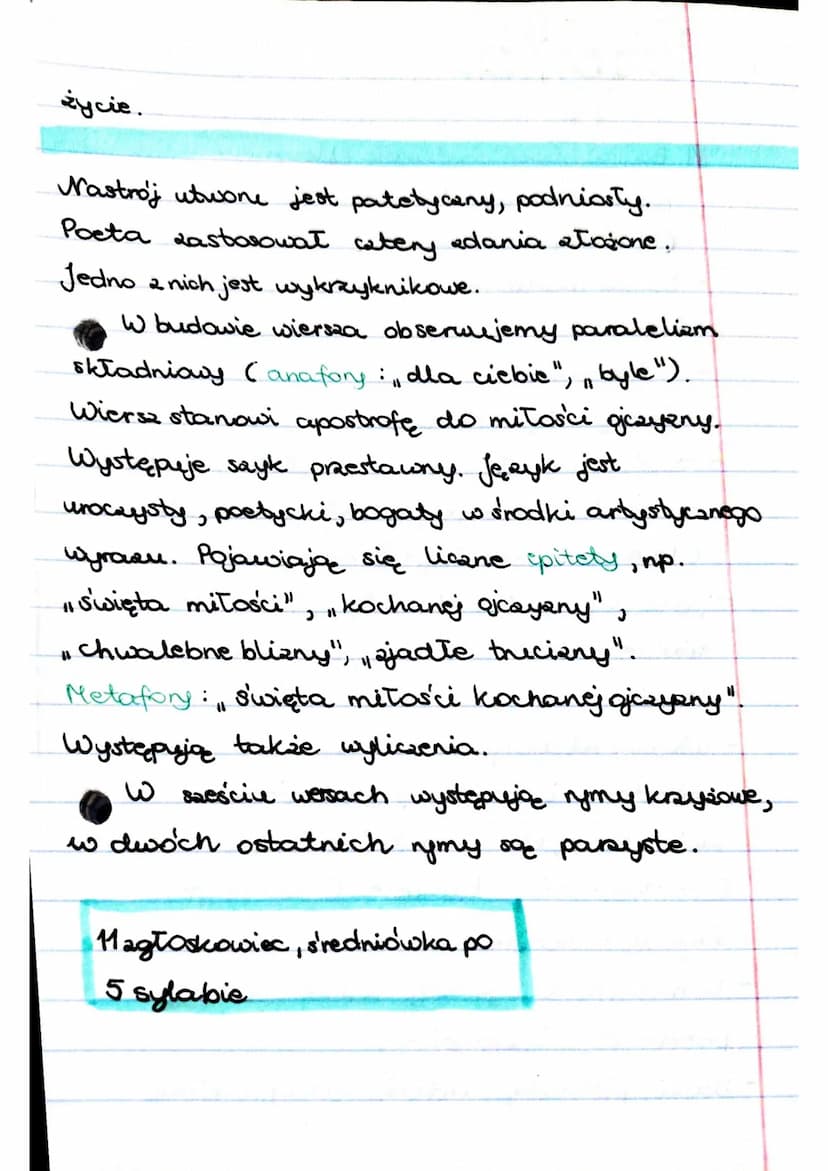 życie.
Nastrój utworu jest patetyczny, podniosły.
Poeta zastosował cztery zdania złożone.
Jedno z nich jest wykrzyknikowe.
W budowie wiersza obserwujemy paralelizm
składniowy (anafory: „dla ciebie", „byle").
Wiersz stanowi apostrofę do miłości ojczyzny.
Występuje szyk przestawny. Język jest
uroczysty, poetycki, bogaty w środki artystycznego
wyrazu. Pojawiają się liczne epitety, np.
„święta miłości", „kochanej ojczyzny",
„chwalebne blizny", „zjadłe trucizny".
Metafory: „święta miłości kochanej ojczyzny".
Występują także wyliczenia.
W sześciu wersach występują rymy krzyżowe,
w dwóch ostatnich rymy są parzyste.
11 zgłoskowiec, średniówka po
5 sylabie